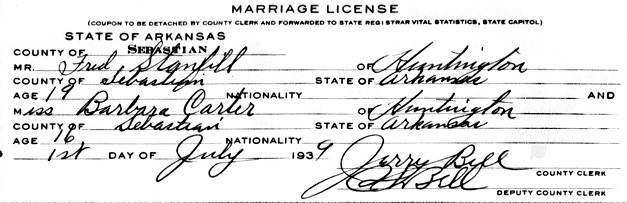 MARRIAGE LICENSE
(COUPON TO BE DETACHED BY COUNTY CLERK AND FORWARDED TO STATE REGISTRAR VITAL STATISTICS, STATE CAPITOL)
STATE OF ARKANSAS
COUNTY OF SEBASTIAN
MR. Fred Stanfill OF Huntington
COUNTY OF Sebastian STATE OF Arkansas
AGE 19 NATIONALITY AND
Miss Barbara Carter OF Huntington
COUNTY OF Sebastian STATE OF Arkansas
AGE 16 NATIONALITY
1st DAY OF July 1939 Jerry Bell
COUNTY CLERK
Bell
DEPUTY COUNTY CLERK